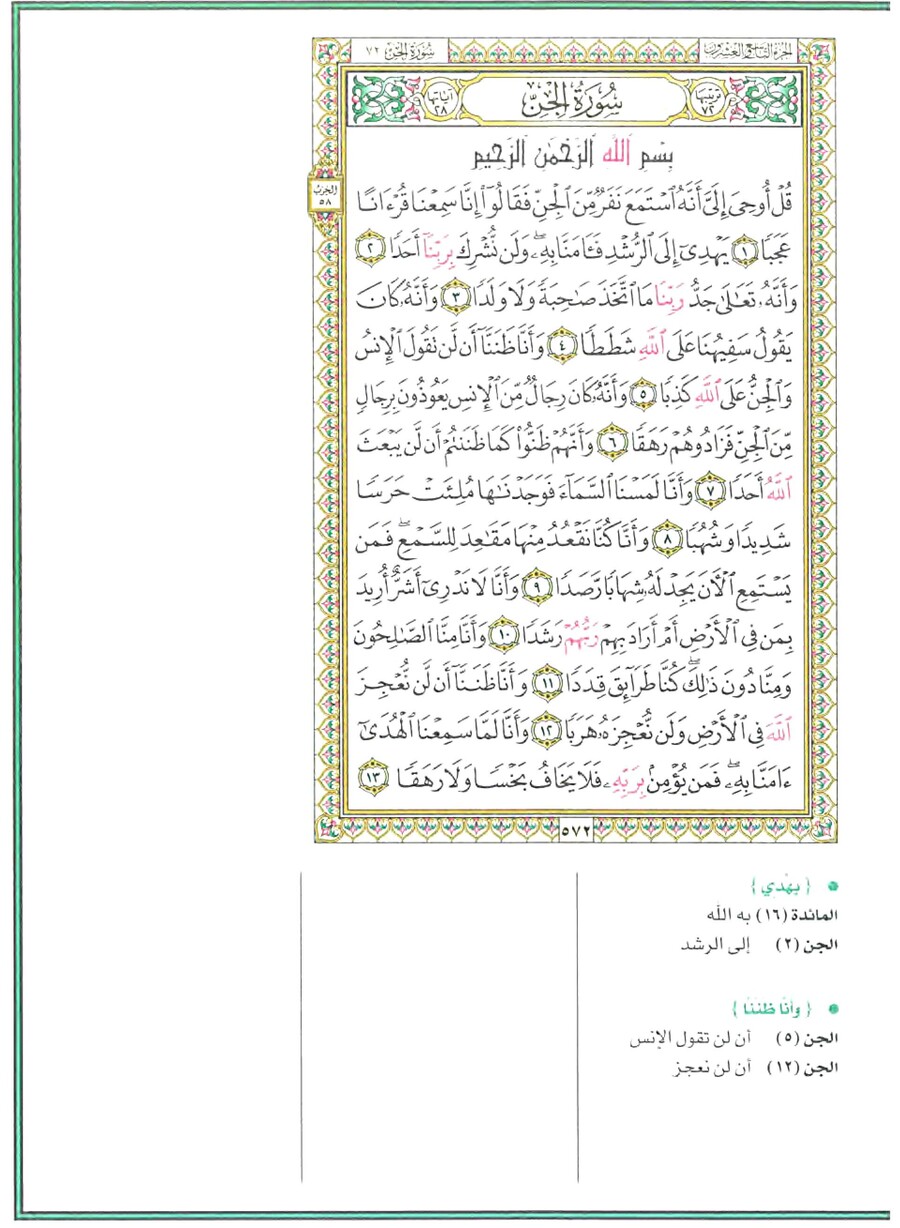 الجزء التاسع والعشرون
سورة الجن ٧٢
ترتيبها ٧٢
سُورَةُ الجِنّ
آياتها ٢٨
بِسْمِ ٱللَّهِ ٱلرَّحْمَٰنِ ٱلرَّحِيمِ
الحزب ٥٨
قُلْ أُوحِىَ إِلَىَّ أَنَّهُ ٱسْتَمَعَ نَفَرٌ مِّنَ ٱلْجِنِّ فَقَالُوٓا۟ إِنَّا سَمِعْنَا قُرْءَانًا
عَجَبًا ١ يَهْدِىٓ إِلَى ٱلرُّشْدِ فَـَٔامَنَّا بِهِۦ ۖ وَلَن نُّشْرِكَ بِرَبِّنَآ أَحَدًا ٢
وَأَنَّهُۥ تَعَٰلَىٰ جَدُّ رَبِّنَا مَا ٱتَّخَذَ صَٰحِبَةً وَلَا وَلَدًا ٣ وَأَنَّهُۥ كَانَ
يَقُولُ سَفِيهُنَا عَلَى ٱللَّهِ شَطَطًا ٤ وَأَنَّا ظَنَنَّآ أَن لَّن تَقُولَ ٱلْإِنسُ
وَٱلْجِنُّ عَلَى ٱللَّهِ كَذِبًا ٥ وَأَنَّهُۥ كَانَ رِجَالٌ مِّنَ ٱلْإِنسِ يَعُوذُونَ بِرِجَالٍ
مِّنَ ٱلْجِنِّ فَزَادُوهُمْ رَهَقًا ٦ وَأَنَّهُمْ ظَنُّوا۟ كَمَا ظَنَنتُمْ أَن لَّن يَبْعَثَ
ٱللَّهُ أَحَدًا ٧ وَأَنَّا لَمَسْنَا ٱلسَّمَآءَ فَوَجَدْنَٰهَا مُلِئَتْ حَرَسًا
شَدِيدًا وَشُهُبًا ٨ وَأَنَّا كُنَّا نَقْعُدُ مِنْهَا مَقَٰعِدَ لِلسَّمْعِ ۖ فَمَن
يَسْتَمِعِ ٱلْـَٔانَ يَجِدْ لَهُۥ شِهَابًا رَّصَدًا ٩ وَأَنَّا لَا نَدْرِىٓ أَشَرٌّ أُرِيدَ
بِمَن فِى ٱلْأَرْضِ أَمْ أَرَادَ بِهِمْ رَبُّهُمْ رَشَدًا ١٠ وَأَنَّا مِنَّا ٱلصَّٰلِحُونَ
وَمِنَّا دُونَ ذَٰلِكَ ۖ كُنَّا طَرَآئِقَ قِدَدًا ١١ وَأَنَّا ظَنَنَّآ أَن لَّن نُّعْجِزَ
ٱللَّهَ فِى ٱلْأَرْضِ وَلَن نُّعْجِزَهُۥ هَرَبًا ١٢ وَأَنَّا لَمَّا سَمِعْنَا ٱلْهُدَىٰٓ
ءَامَنَّا بِهِۦ ۖ فَمَن يُؤْمِنۢ بِرَبِّهِۦ فَلَا يَخَافُ بَخْسًا وَلَا رَهَقًا ١٣
٥٧٢
● { يهدي }
المائدة (١٦) به الله
الجن (٢) إلى الرشد
● { وأنا ظننا }
الجن (٥) أن لن تقول الإنس
الجن (١٢) أن لن نعجز